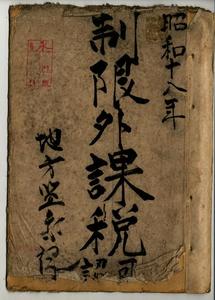 昭和十八年
制限外課税
認可
地方